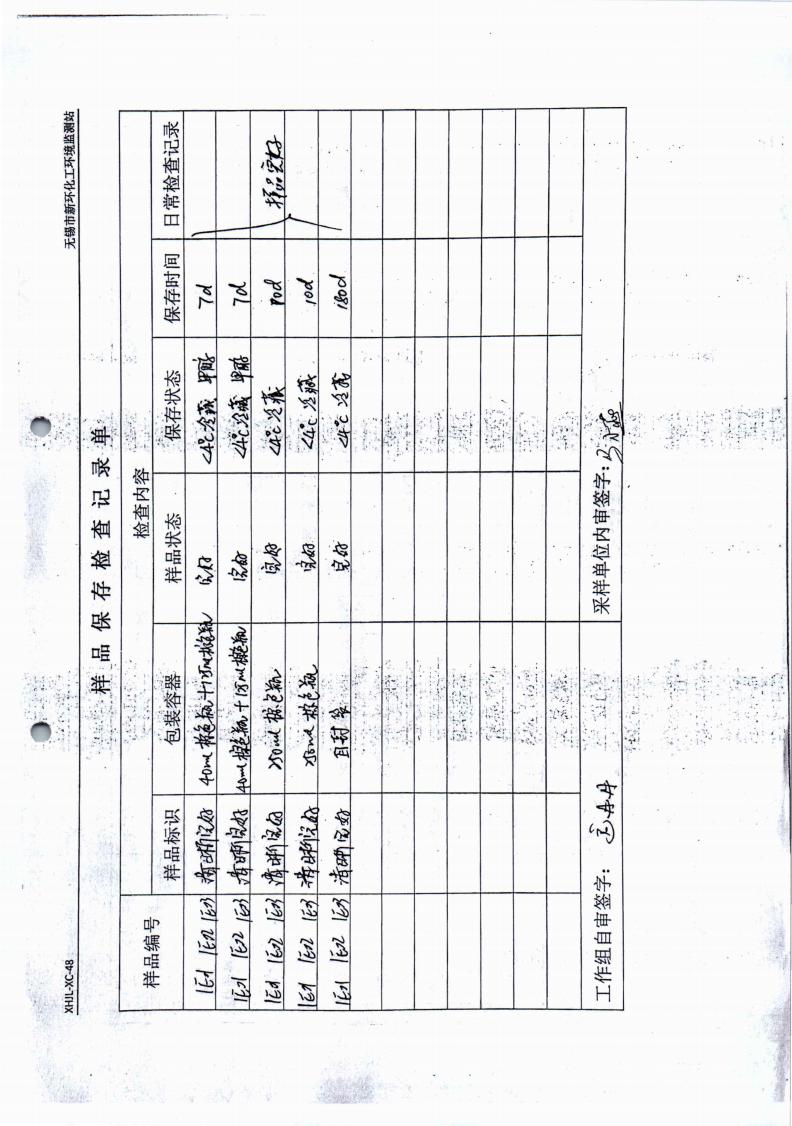 XHJL-XC-48 无锡市新环化工环境监测站
样品保存检查记录单
样品编号 检查内容
样品标识 包装容器 样品状态 保存状态 保存时间 日常检查记录
1E1 1E2 1E3 清晰完好 40ml棕色瓶+125ml棕色瓶 完好 <4℃冷藏 甲醇 7d
1E1 1E2 1E3 清晰完好 40ml棕色瓶+125ml棕色瓶 完好 <4℃冷藏 甲醇 7d
1E1 1E2 1E3 清晰完好 250ml棕色瓶 完好 <4℃冷藏 样品完好
1E1 1E2 1E3 清晰完好 250ml棕色瓶 完好 <4℃冷藏 10d
1E1 1E2 1E3 清晰完好 自封袋 完好 <4℃冷藏 180d
工作组自审签字: 采样单位内审签字: